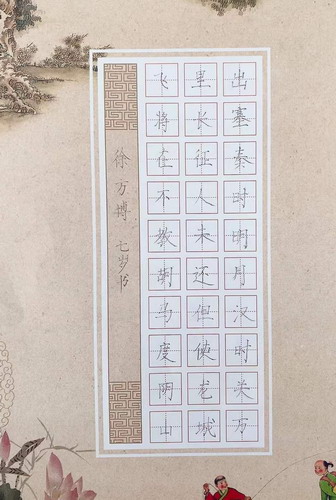 出塞秦时明月汉时关万
里长征人未还但使龙城
飞将在不教胡马度阴山
徐万博 七岁书